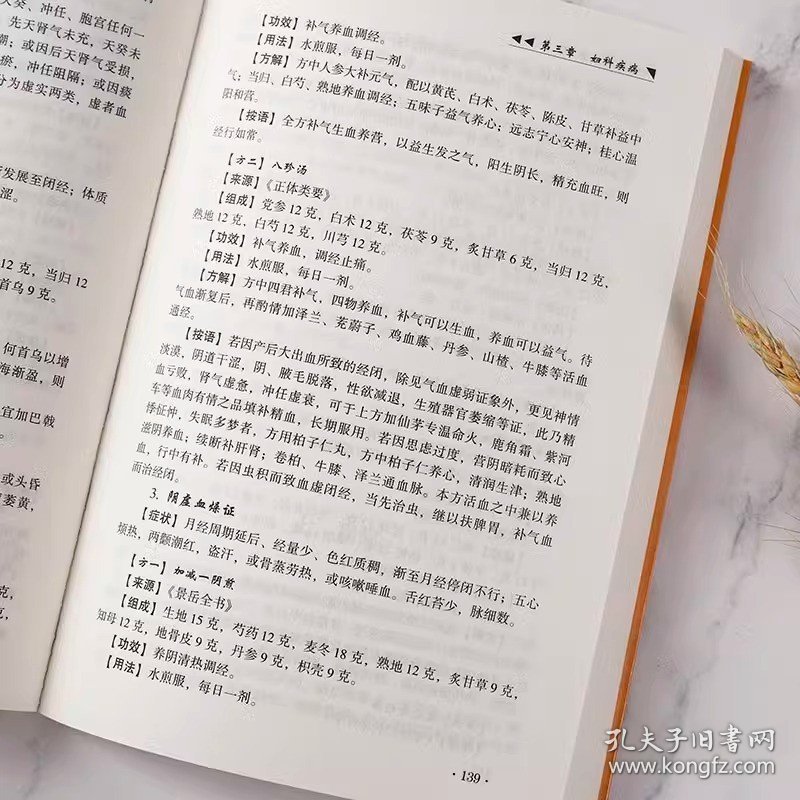 癸、冲任、胞宫任何一
先天肾气未充，天癸未
；或因后天肾气受损，
瘀，冲任阻隔；或因痰
分为虚实两类，虚者血
发展至闭经；体质
涩。
12克，当归12
首乌9克。
何首乌以增
海渐盈，则
宜加巴戟
或头昏
萎黄，
◀◀ 第三章 妇科疾病
【功效】补气养血调经。
【用法】水煎服，每日一剂。
【方解】方中人参大补元气，配以黄芪、白术、茯苓、陈皮、甘草补益中
气；当归、白芍、熟地养血调经；五味子益气养心；远志宁心安神；桂心温
阳和营。
【按语】全方补气生血养营，以益生发之气，阳生阴长，精充血旺，则
经行如常。
【方二】八珍汤
【来源】《正体类要》
【组成】党参12克，白术12克，茯苓9克，炙甘草6克，当归12克，
熟地12克，白芍12克，川芎12克。
【功效】补气养血，调经止痛。
【用法】水煎服，每日一剂。
【方解】方中四君补气，四物养血，补气可以生血，养血可以益气。待
气血渐复后，再酌情加泽兰、茺蔚子、鸡血藤、丹参、山楂、牛膝等活血
通经。
【按语】若因产后大出血所致的经闭，除见气血虚弱证象外，更见神情
淡漠，阴道干涩，阴、腋毛脱落，性欲减退，生殖器官萎缩等证，此乃精
血亏败，肾气虚惫，冲任虚衰，可于上方加仙茅专温命火，鹿角霜、紫河
车等血肉有情之品填补精血，长期服用。若因思虑过度，营阴暗耗而致心
悸怔忡，失眠多梦者，方用柏子仁丸，方中柏子仁养心，清润生津；熟地
滋阴养血；续断补肝肾；卷柏、牛膝、泽兰通血脉。本方活血之中兼以养
血，行中有补。若因虫积而致血虚闭经，当先治虫，继以扶脾胃，补气血
而治经闭。
3. 阴虚血燥证
【症状】月经周期延后、经量少、色红质稠，渐至月经停闭不行；五心
烦热，两颧潮红，盗汗，或骨蒸劳热，或咳嗽唾血。舌红苔少，脉细数。
【方一】加减一阴煎
【来源】《景岳全书》
【组成】生地15克，芍药12克，麦冬18克，熟地12克，炙甘草9克，
知母12克，地骨皮9克，丹参9克，枳壳9克。
【功效】养阴清热调经。
【用法】水煎服，每日一剂。
·139·
孔夫子旧书网
www.kongfz.com